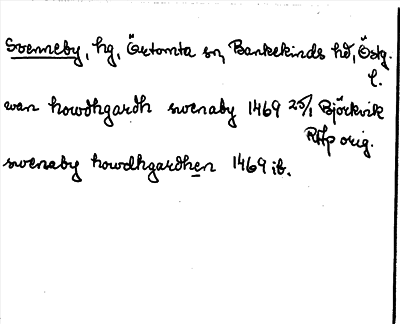 Svenneby, hg, Örtomta sn, Bankekinds hd, Östg.
l.
wan howdhgardh swenaby 1469 25/1 Björkvik
RApp orig.
swenaby howdhgardhen 1469 ib.